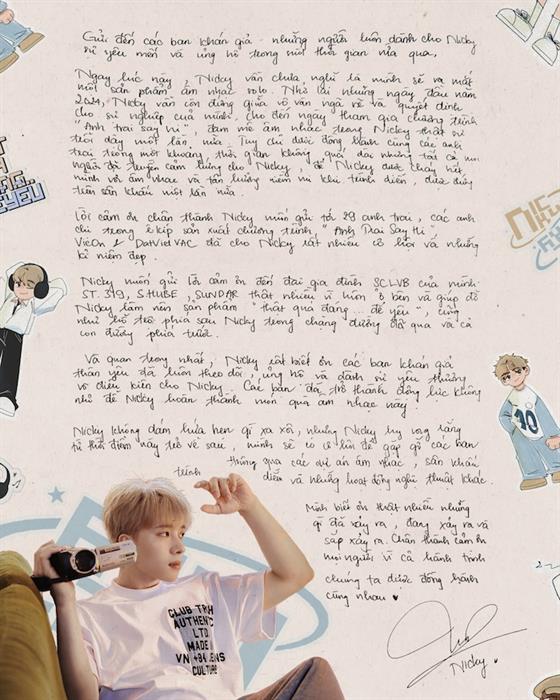 Gửi đến các bạn khán giả - những người luôn dành cho Nicky
sự yêu mến và ủng hộ trong suốt thời gian vừa qua,
Ngay lúc này, Nicky vẫn chưa nghĩ là mình sẽ ra mắt
một sản phẩm âm nhạc solo. Nhớ lại những ngày đầu năm
2024, Nicky vẫn còn đứng giữa vô vàn ngã rẽ và quyết định
cho sự nghiệp của mình. Cho đến ngày tham gia chương trình
"Anh trai say hi", đam mê âm nhạc trong Nicky thật sự
trỗi dậy một lần nữa. Tuy chỉ được đồng hành cùng các anh
trai trong một khoảng thời gian không quá dài nhưng tất cả mọi
người đã truyền cảm hứng cho Nicky, để Nicky được cháy hết
mình với âm nhạc và tận hưởng niềm vui khi trình diễn, được đứng
trên sân khấu một lần nữa.
Lời cảm ơn chân thành Nicky muốn gửi tới 29 anh trai, các anh
chị trong ê kíp sản xuất chương trình "Anh Trai Say Hi"
VieOn & DatVietVAC đã cho Nicky rất nhiều cơ hội và những
kỉ niệm đẹp.
Nicky muốn gửi lời cảm ơn đến đại gia đình 6CLVB của mình
ST.319, S.HUBE, SUNDAR thật nhiều vì luôn ở bên và giúp đỡ
Nicky làm nên sản phẩm "thật quá đáng... để yêu", cũng
như hỗ trợ phía sau Nicky trong chặng đường đã qua và cả
con đường phía trước.
Và quan trọng nhất, Nicky rất biết ơn các bạn khán giả
thân yêu đã luôn theo dõi, ủng hộ và dành sự yêu thương
vô điều kiện cho Nicky. Các bạn đã trở thành động lực không
nhỏ để Nicky hoàn thành món quà âm nhạc này.
Nicky không dám hứa hẹn gì xa xôi, nhưng Nicky hy vọng rằng
từ thời điểm này trở về sau, mình sẽ có cơ hội để gặp gỡ các bạn
thông qua các dự án âm nhạc, sân khấu
trình diễn và những hoạt động nghệ thuật khác.
Mình biết ơn thật nhiều những
gì đã xảy ra, đang xảy ra và
sắp xảy ra. Chân thành cảm ơn
mọi người vì cả hành trình
chúng ta được đồng hành
cùng nhau
Nicky
CLUB
AUTHENTIC
LTD
MADE
VN +84
CULTURE
10